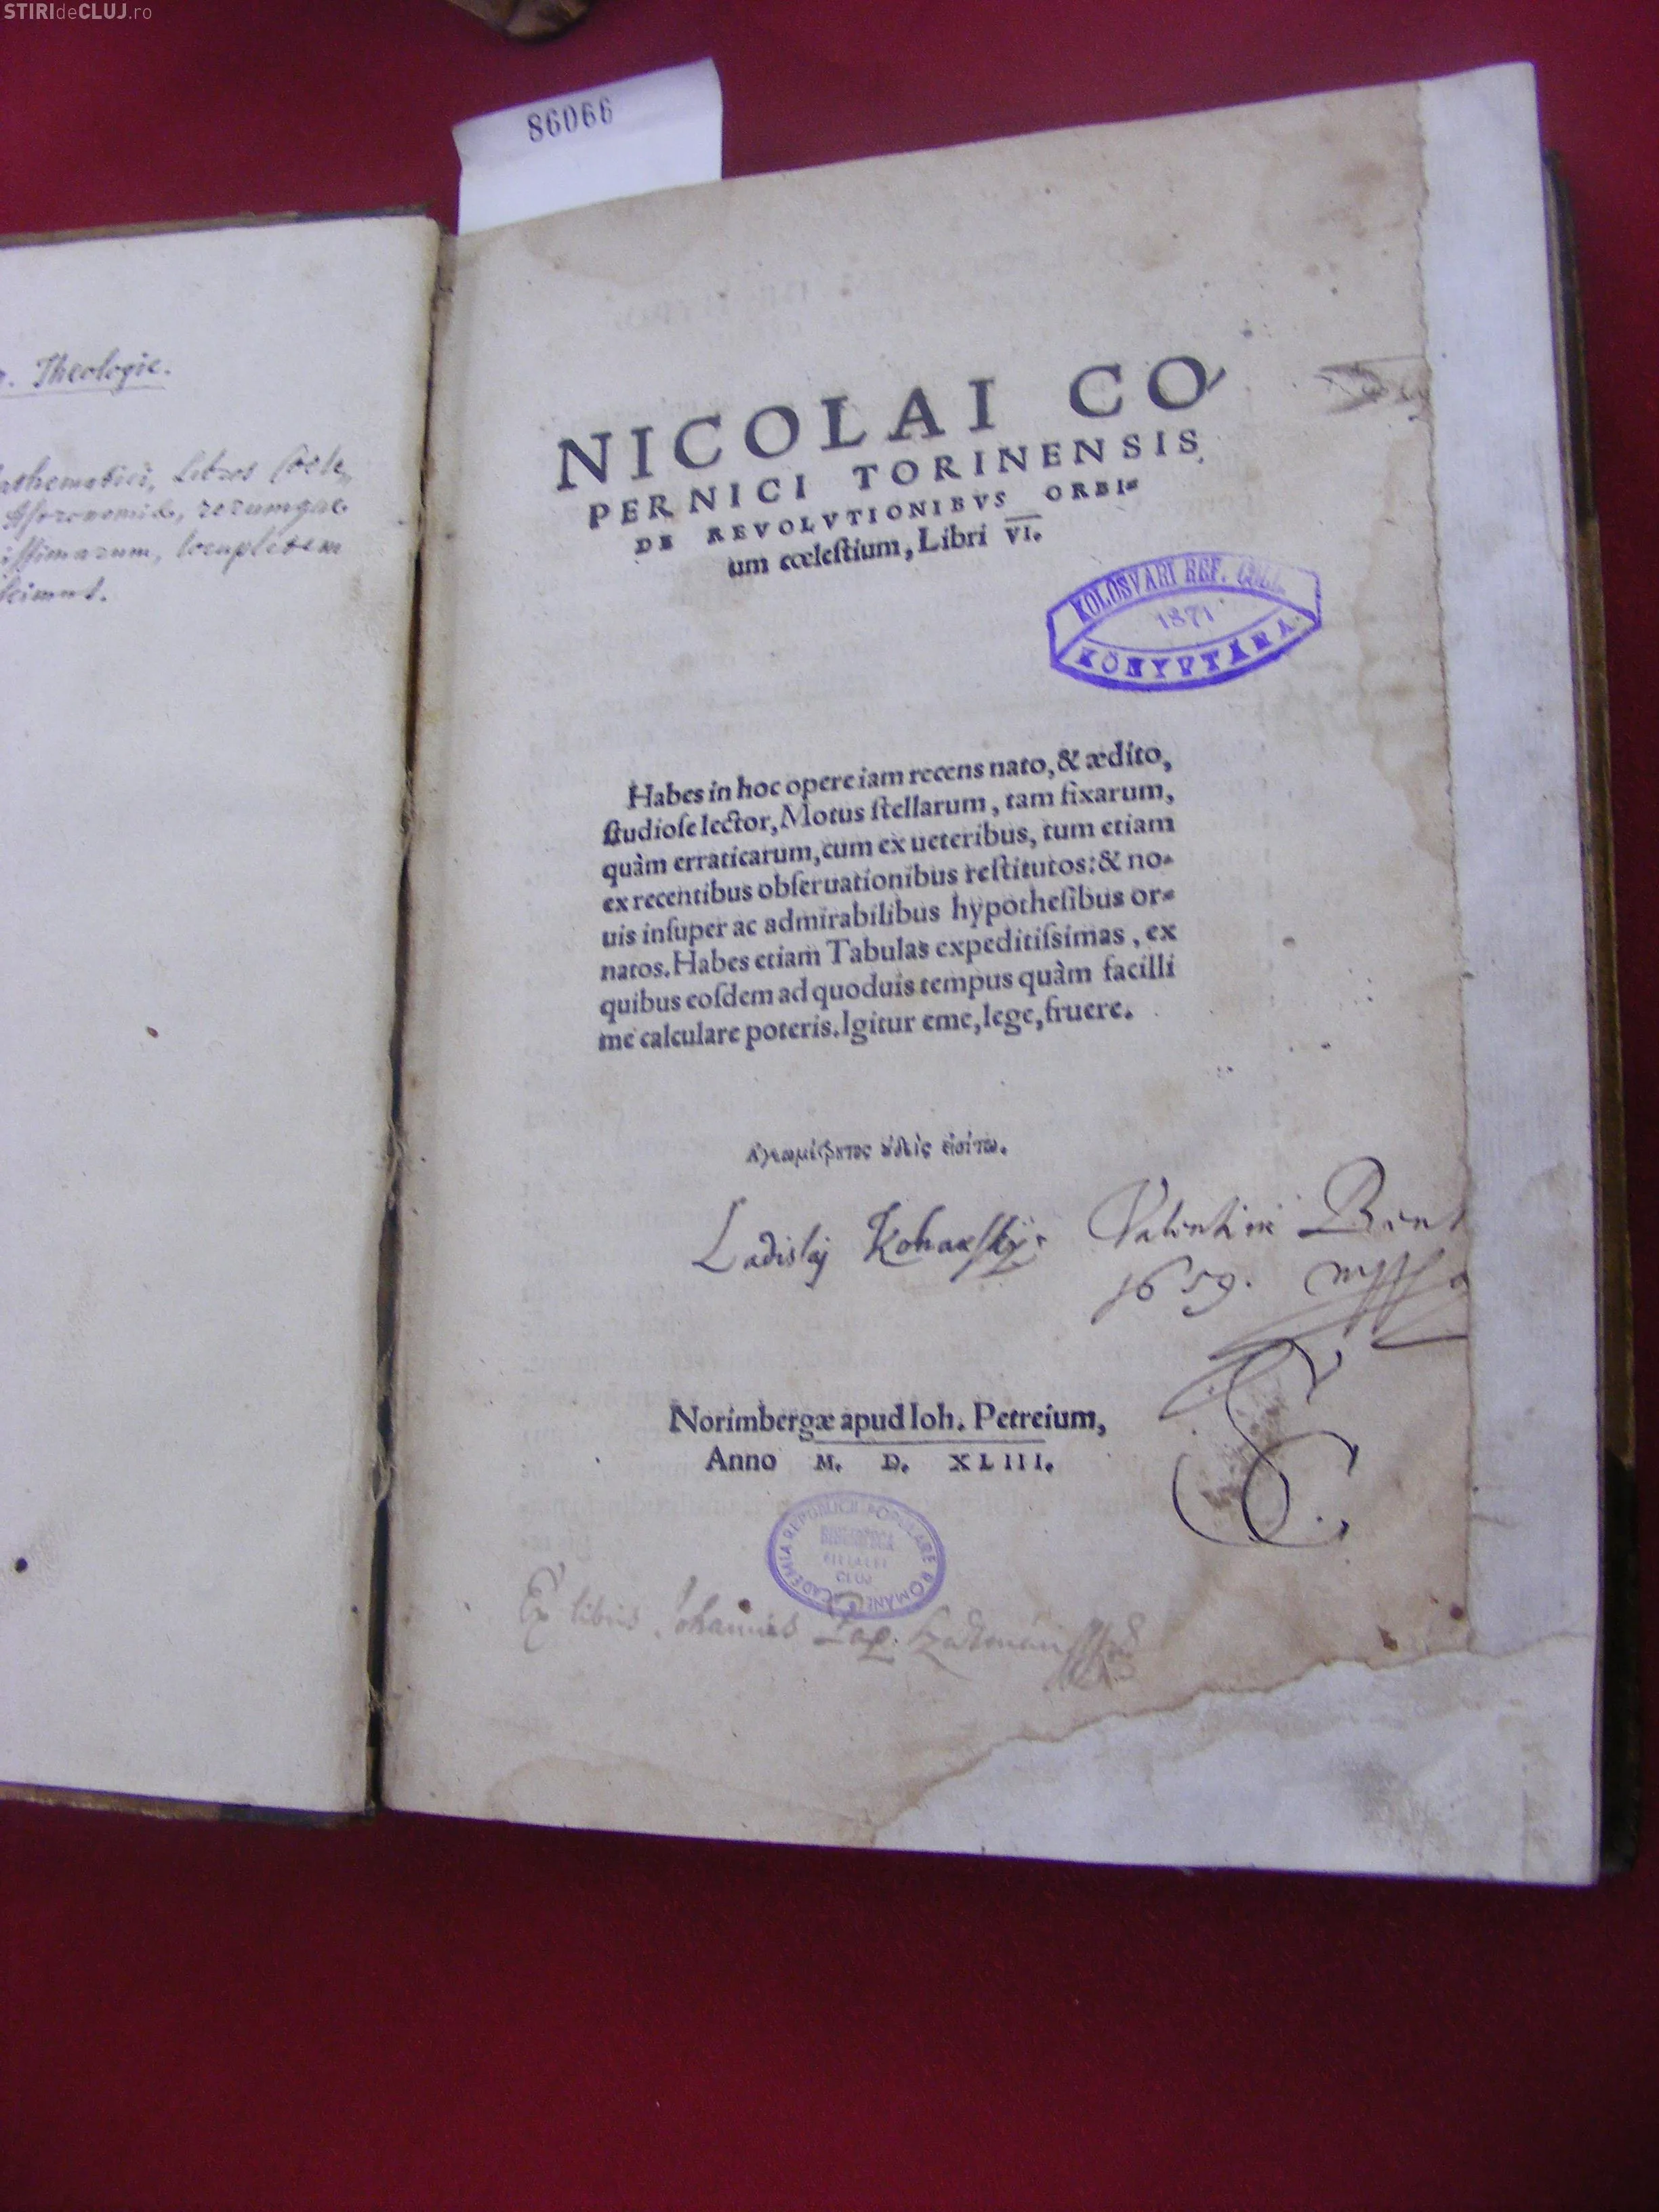 STIRIdeCLUJ.ro
86066
Theologie.
Libros
rerumque
locupletem
NICOLAI CO-
PERNICI TORINENSIS
DE REVOLVTIONIBVS ORBI=
um cœleſtium, Libri VI.
KOLOSVARI REF. COLL.
1871
KÖNYVTÁRA
Habes in hoc opere iam recens nato, & ædito,
ſtudioſe lector, Motus ſtellarum, tam fixarum,
quàm erraticarum, cum ex ueteribus, tum etiam
ex recentibus obſeruationibus reſtitutos: & no=
uis inſuper ac admirabilibus hypotheſibus or=
natos. Habes etiam Tabulas expeditiſsimas, ex
quibus eoſdem ad quoduis tempus quàm facilli
me calculare poteris. Igitur eme, lege, fruere.
Ἀγεωμέτρητος ὐδεὶς εἰσίτω.
Ladislaj Valentini
1659.
Norimbergæ apud Ioh. Petreium,
Anno M. D. XLIII.
ACADEMIA REPUBLICII POPULARE ROMÂNE
BIBLIOTECA
FILIALEI
CLUJ
Ex libris Johannis